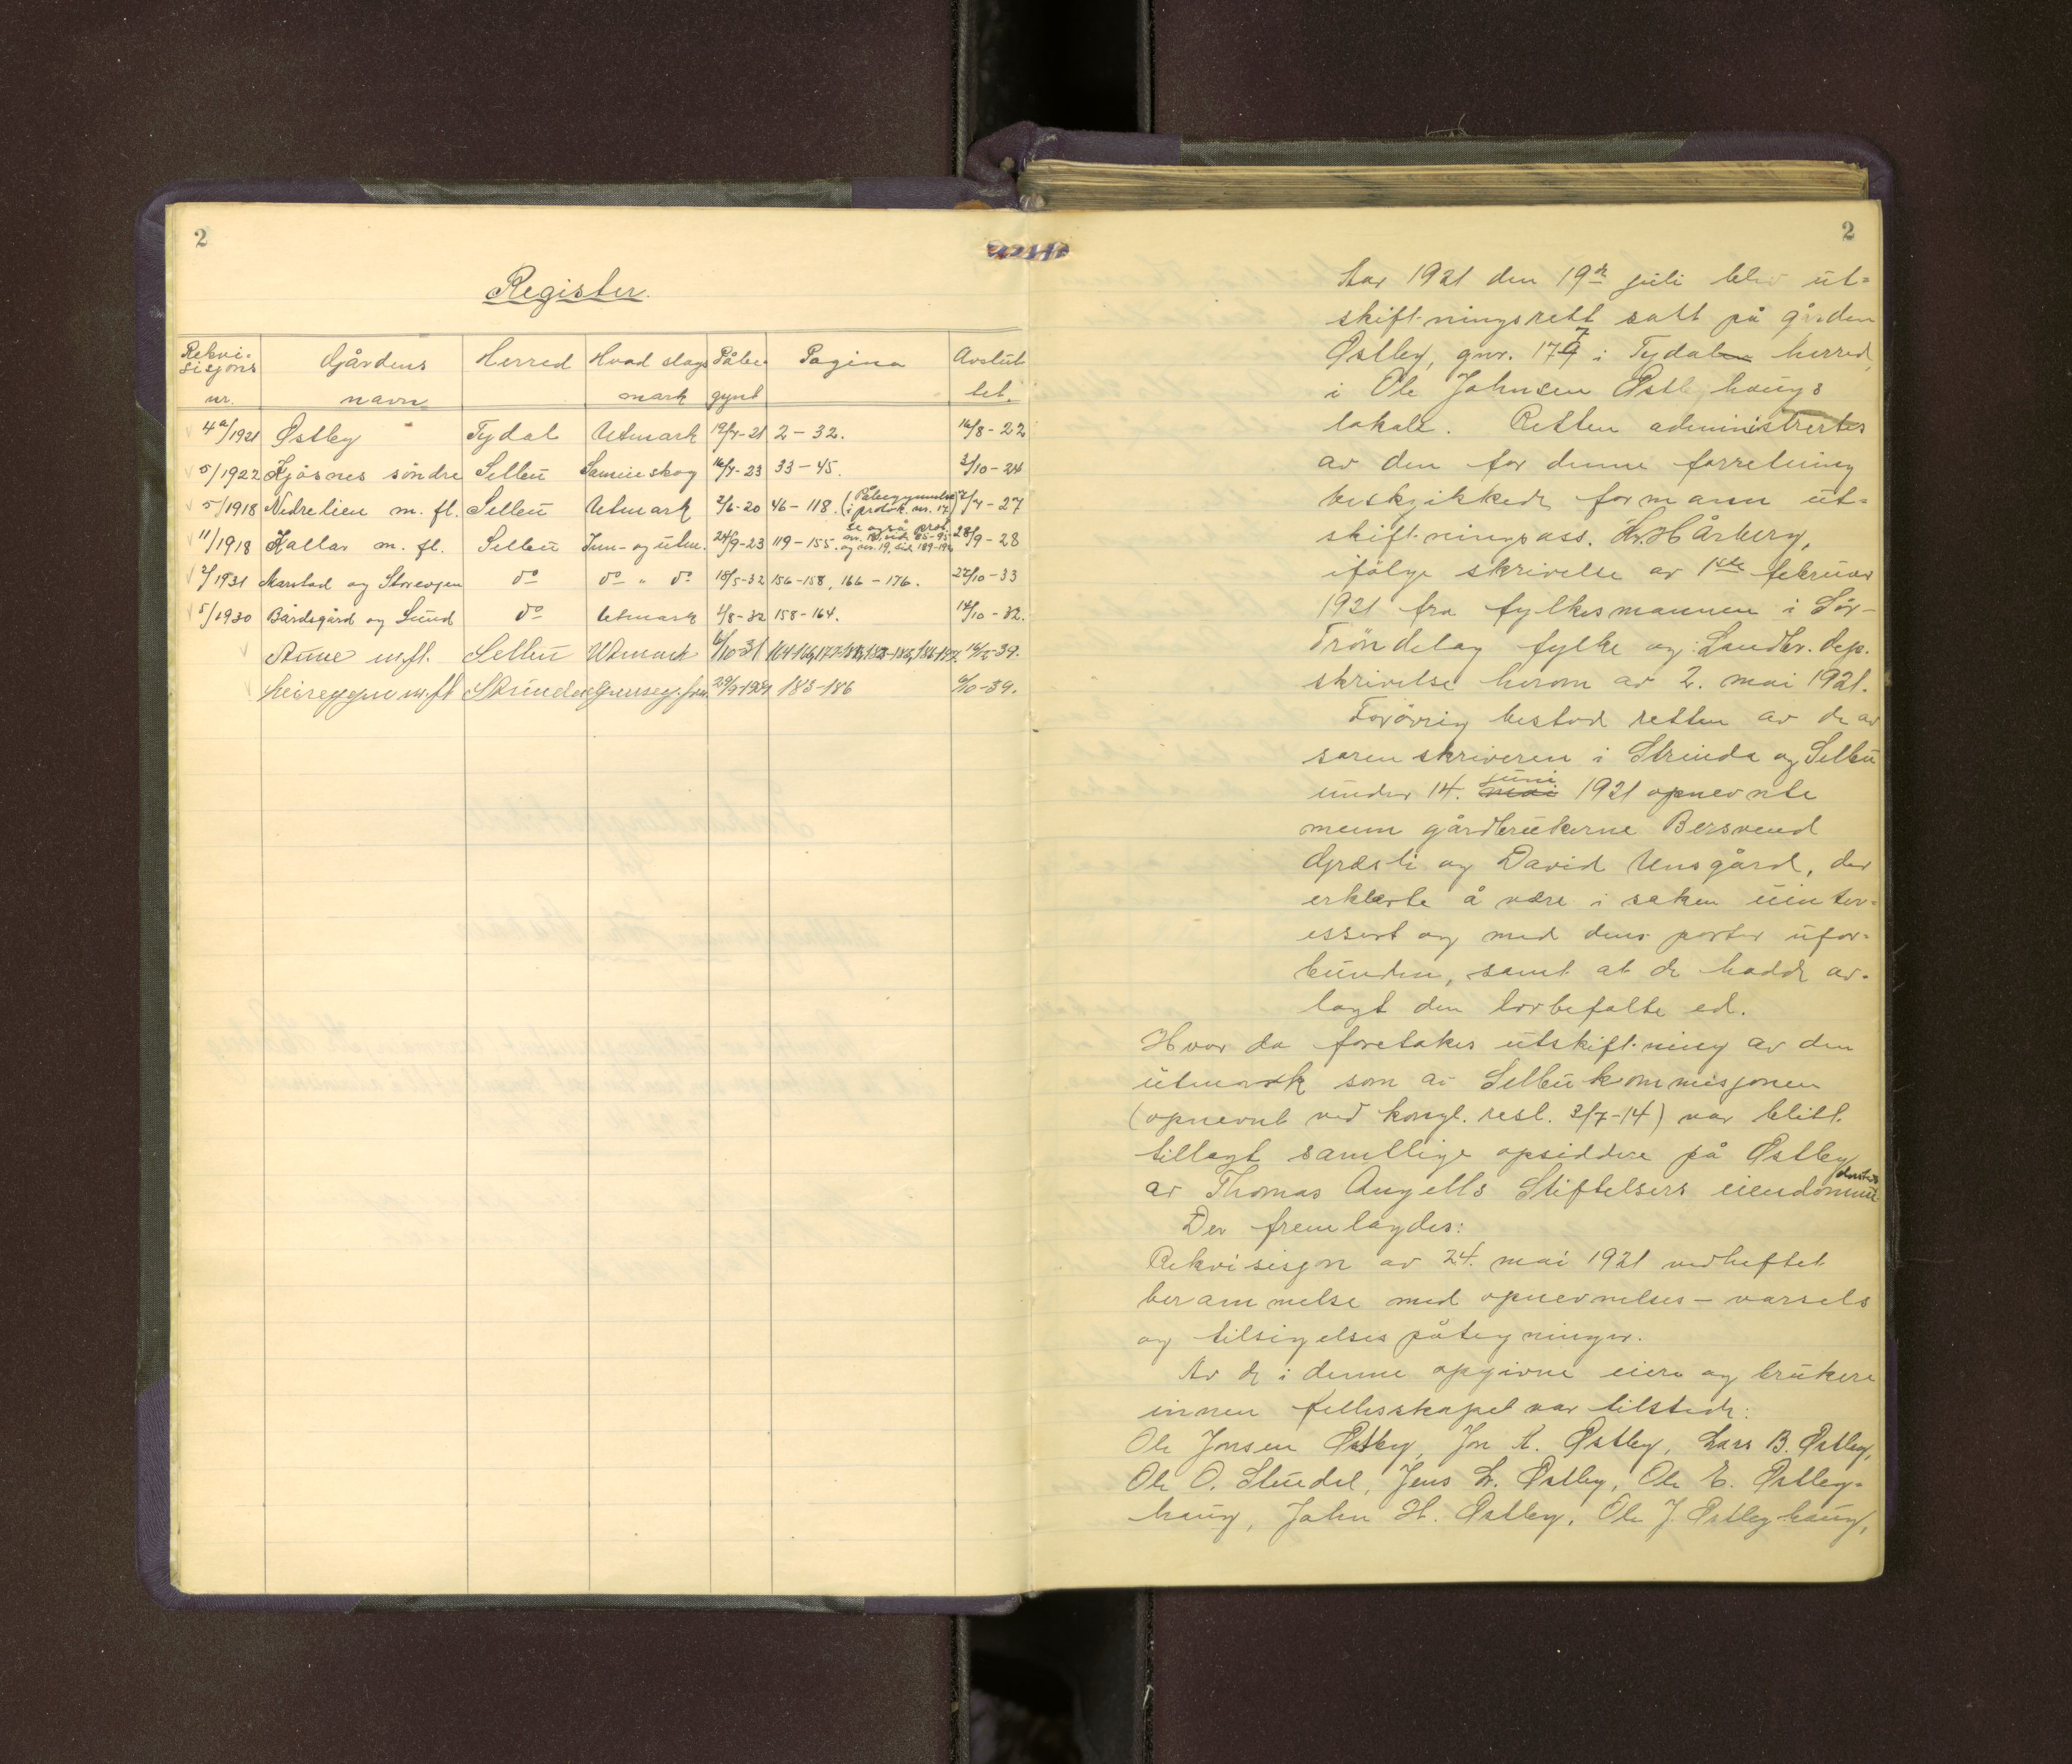 2
Register.
Rekvi-sisjons nr. Gårdens navn Herred Hvad slags mark Påbe-gynt Pagina Avslut-tet.
4a/1921 Østby Tydal Utmark 19/7-21 2-32. 16/8-22
5/1922 Kjøsnes søndre Selbu Sameieskog 16/7-23 33-45. 3/10-24
5/1918 Nedrelien m. fl. Selbu Utmark 2/6-20 46-118. (Påbegynnelse i protok. nr. 17) 2/7-27
11/1918 Kallar m. fl. Selbu Inn- og utm. 24/9-23 119-155. se også prot. nr. 18, sid. 85-95 og nr. 19, sid. 189-192 28/9-28
2/1931 Marstad og Storevjen do do " do 18/5-32 156-158, 166-176. 27/10-33
5/1930 Bårdsgård og Lund do Utmark 1/8-32 158-164. 14/10-32.
Aune m.fl. Selbu Utmark 6/10-31 14/2-39.
m.fl. Strinda 183-186 6/10-39.
2
Aar 1921 den 19de juli blev ut=
skiftningsrett satt på gården
Østby, gnr. 177 i Tydal herred,
i Ole Johnsen Østbyhaugs
lokale. Retten administrertes
av den for denne forretning
beskikkede formann ut=
skiftningsass. Hr. H Årberg,
ifølge skrivelse av 1ste februar
1921 fra fylkesmannen i Sør-
Trøndelag fylke og Landbr. dep.
skrivelse herom av 2. mai 1921.
Forøvrig bestod retten av de av
sorenskriveren i Strinda og Selbu
under 14. mai juni 1921 opnevnte
menn gårdbrukerne Bersvend
Græsli og David Unsgård, der
erklærte å være i saken uinter=
essert og med dens parter ufor=
bunden, samt at de hadde av-
lagt den lovbefalte ed.
Hvor da foretakes utskiftning av den
utmark som av Selbukommisjonen
(opnevnt ved kongl. resl. 3/7-14) var blitt
tillagt samtlige opsiddere på Østby
av Thomas Angells Stiftelsers eiendommer
Der fremlagdes:
Rekvisisjon av 24. mai 1921 vedheftet
berammelse med opnevnelses- varsels
og tilsigelsespåtegninger.
Av de i denne opgivne eiere og brukere
innen fellesskapet var tilstede:
Ole Jonsen Østby, Jon A. Østby, Lars B. Østby,
Ole O. Stuedal, Jens L. Østby, Ole E. Østby-
haug, John H. Østby, Ole J. Østbyhaug,